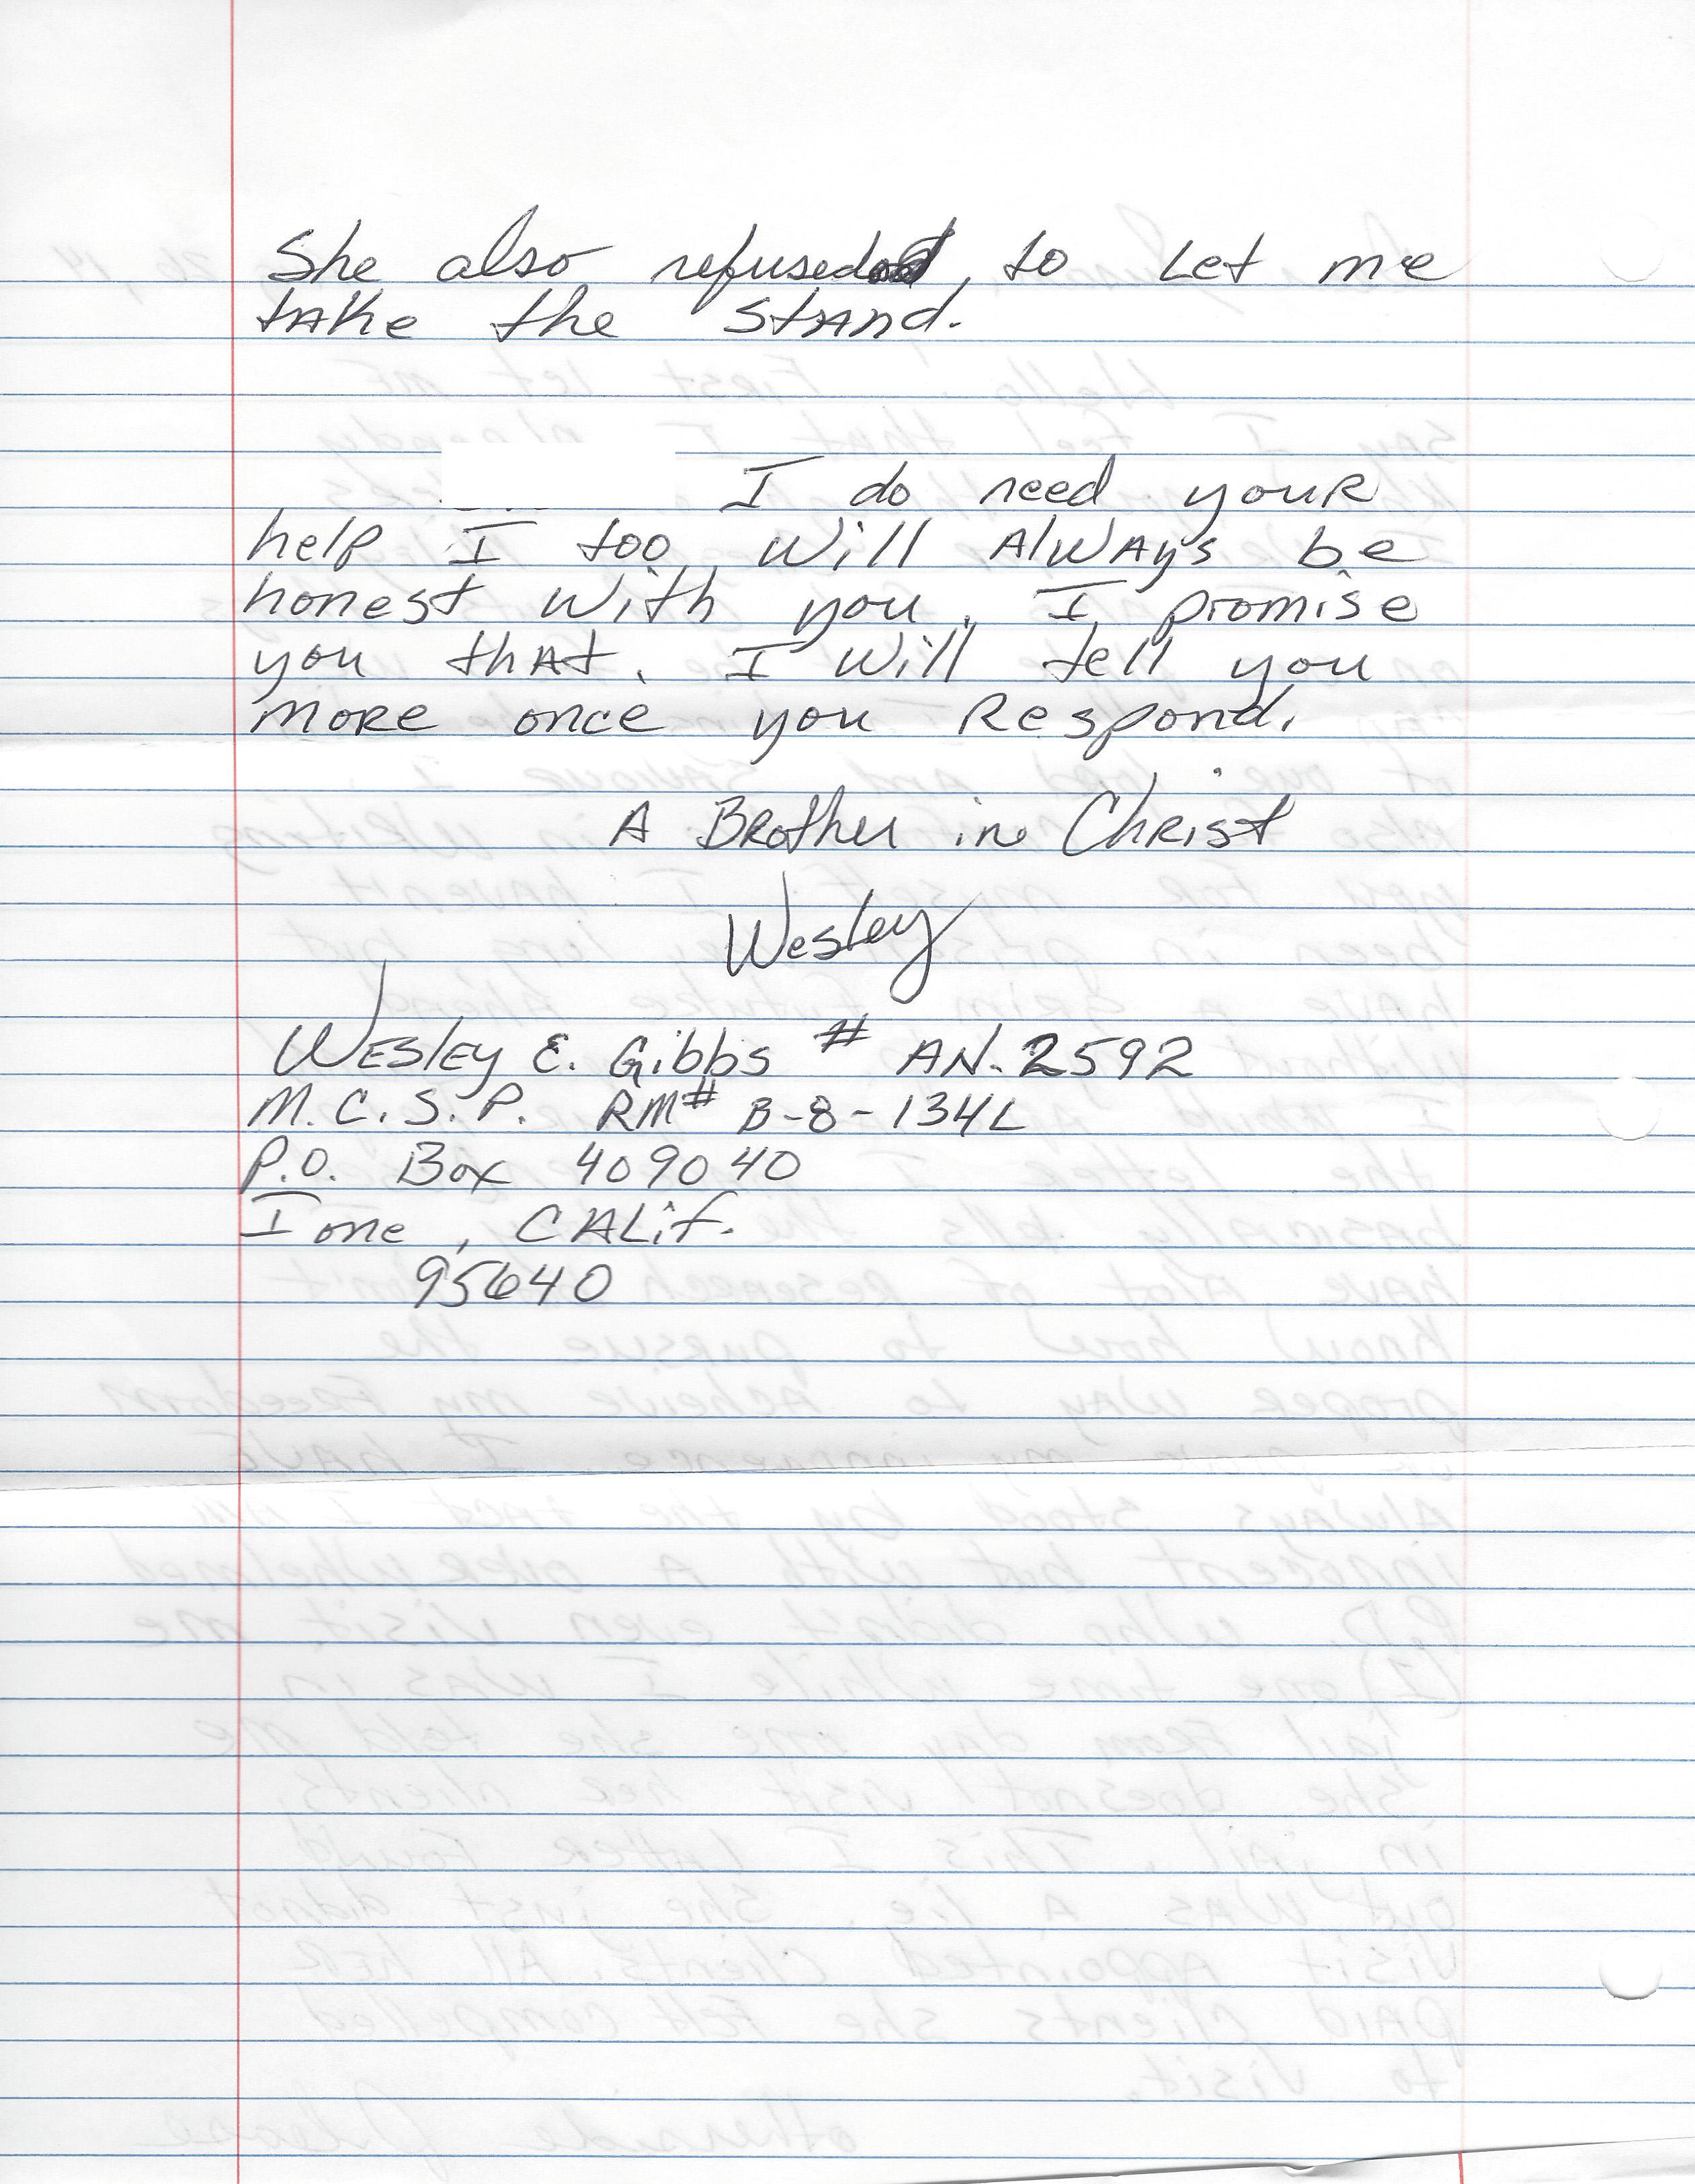 She also refused to Let me
take the stand.
I do need your
help I too will Always be
honest with you. I promise
you that. I will tell you
more once you Respond.
A Brother in Christ
Wesley
Wesley E. Gibbs # AN.2592
M.C.S.P. RM# B-8-134L
P.O. Box 409040
Ione, CALif.
95640